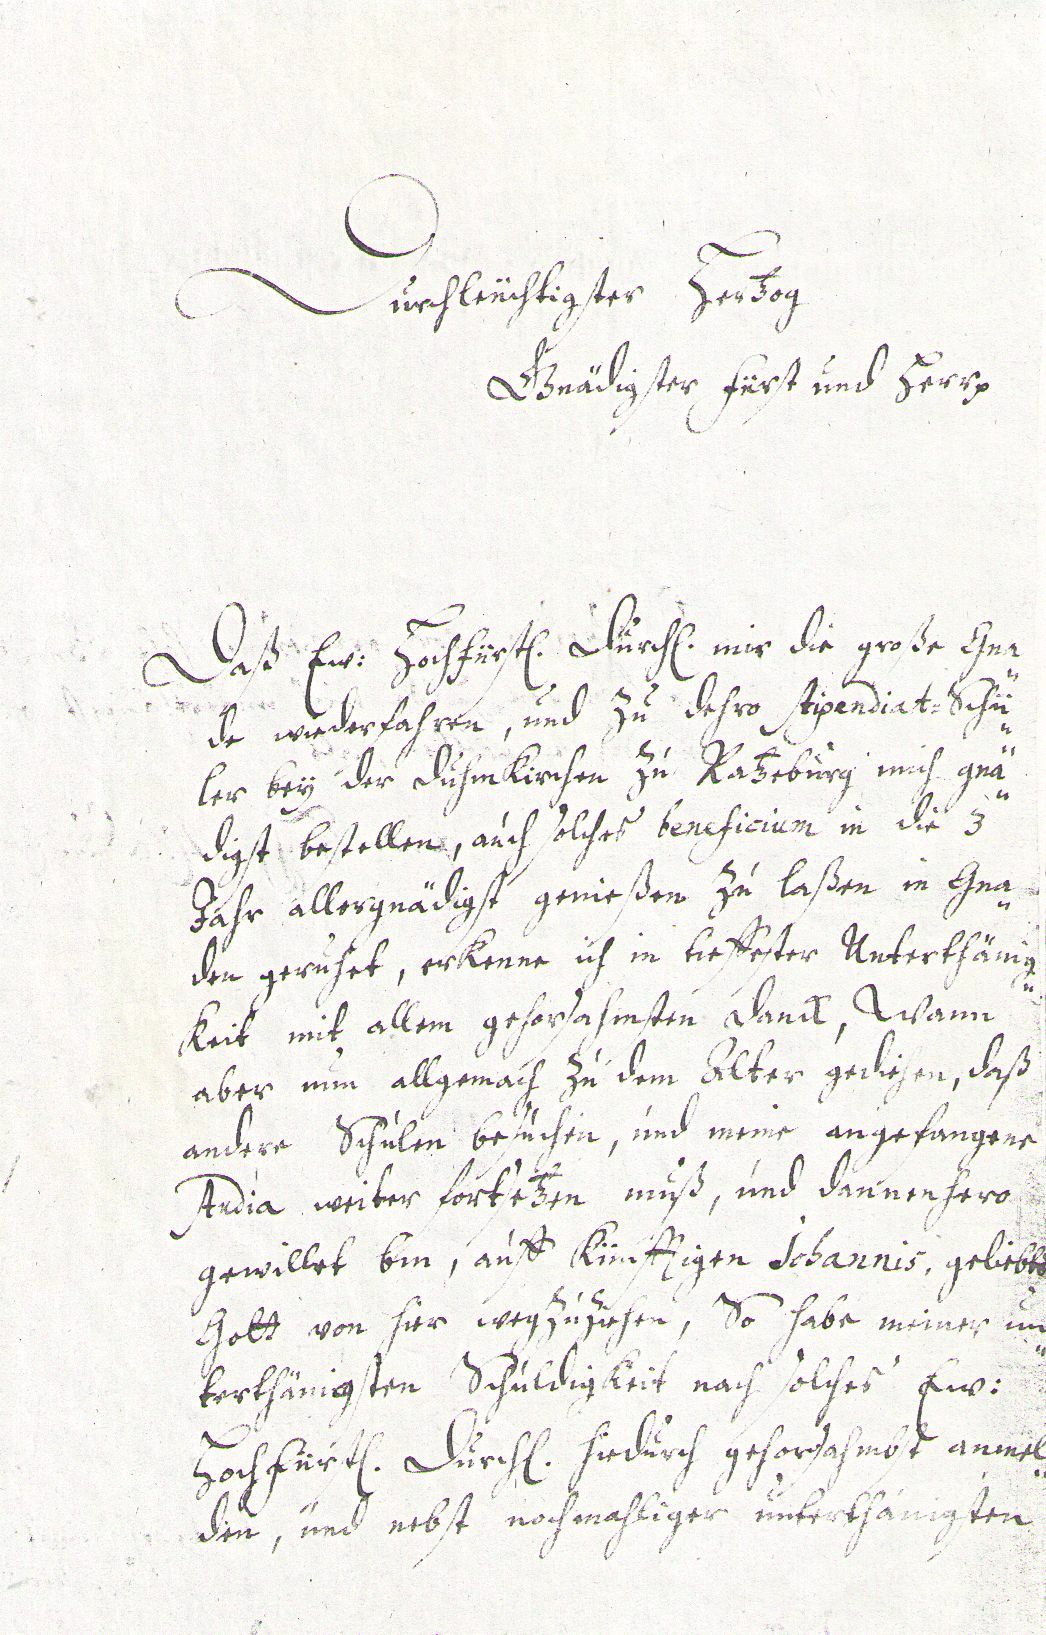 Durchleüchtigster Hertzog
Gnädigster Fürst und Herr
Daß Ew: Hochfürstl. Durchl. mir die große Gna
de wiederfahren, und zu dehro stipendiat-Schü
ler bey der Duhmkirchen zu Ratzeburg mich gnä
digst bestellen, auch solches beneficium in die 3
Jahr allergnädigst genießen zu laßen in Gna
den geruhet, erkenne ich in tieffester Unterthänig
keit mit allem gehorsahmsten Danck, Wann
aber nun allgemach zu dem Alter gediehen, daß
andere Schulen besuchen, und meine angefangene
Studia weiter fortsetzen muß, und dannenhero
gewillet bin, auff künfftigen Johannis, geliebts
Gott von hier wegzuziehen, So habe meiner un
terthänigsten Schuldigkeit nach solches Ew:
Hochfürstl. Durchl. hiedurch gehorsahmbst anmel
den, und nebst nochmahliger unterthänigsten